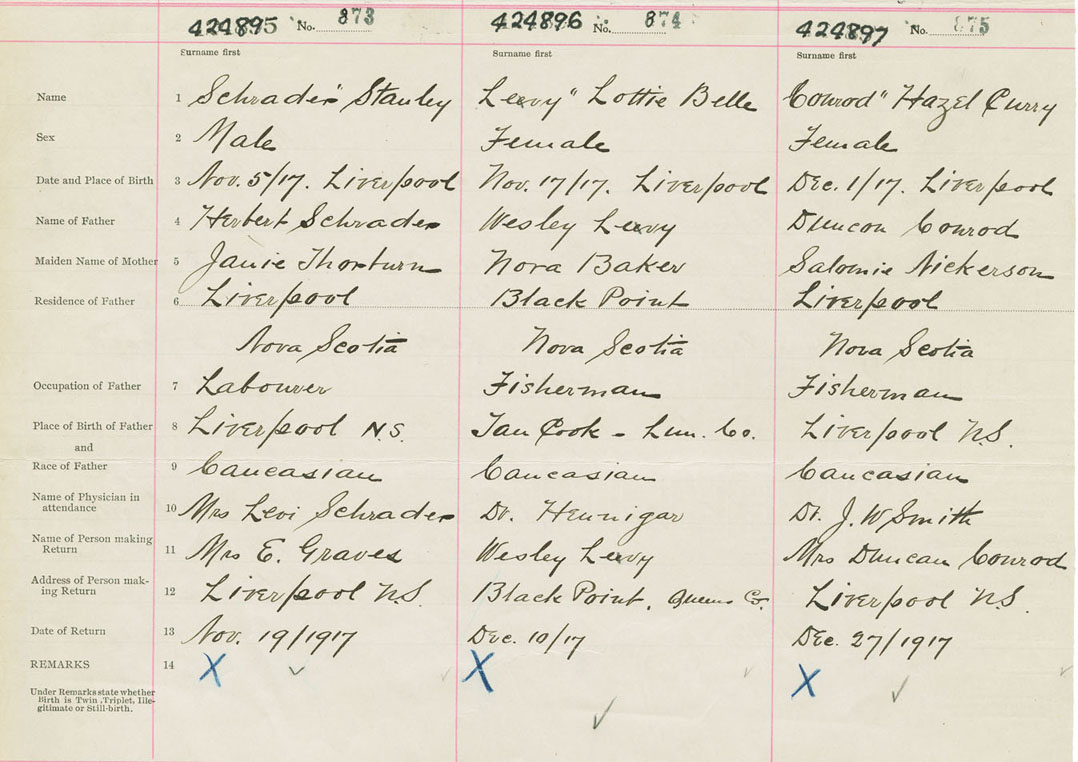 424895 No. 873 424896 No. 874 424897 No. 875
Surname first Surname first Surname first
Name 1 Schrader" Stanley Leavy" Lottie Belle Conrod" Hazel Curry
Sex 2 Male Female Female
Date and Place of Birth 3 Nov. 5/17. Liverpool Nov. 17/17. Liverpool Dec. 1/17. Liverpool
Name of Father 4 Herbert Schrader Wesley Leavy Duncon Conrod
Maiden Name of Mother 5 Janie Thorburn Nora Baker Salomie Nickerson
Residence of Father 6 Liverpool Black Point Liverpool
Nova Scotia Nova Scotia Nova Scotia
Occupation of Father 7 Labourer Fisherman Fisherman
Place of Birth of Father 8 Liverpool N.S. Tan Cook - Lun. Co. Liverpool N.S.
and
Race of Father 9 Caucasian Caucasian Caucasian
Name of Physician in
attendance 10 Mrs Levi Schrader Dr. Hennigar Dr. J. W Smith
Name of Person making
Return 11 Mrs E. Graves Wesley Leavy Mrs Duncan Conrod
Address of Person mak-
ing Return 12 Liverpool N.S. Black Point, Queens Co. Liverpool N.S.
Date of Return 13 Nov. 19/1917 Dec. 10/17 Dec. 27/1917
REMARKS 14 X X X
Under Remarks state whether
Birth is Twin, Triplet, Ille-
gitimate or Still-birth.